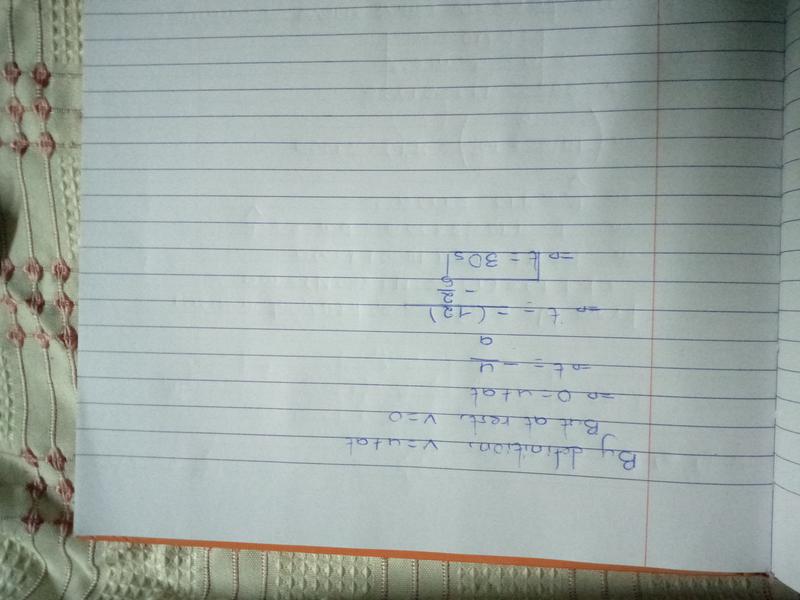 By definition, v=u+at
But at rest, v=0
⇒ 0=u+at
⇒ t = -u/a
⇒ t = -(12)/-2/5
⇒ t = 30s